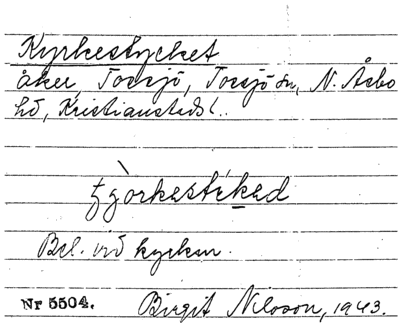 Kyrkestycket
åker, Tossjö, Tossjö sn, N. Åsbo
hd, Kristianstads l..
ţɟòrkastékad
Bel. vid kyrkan.
Nr 5504. Birgit Nilsson, 1943.